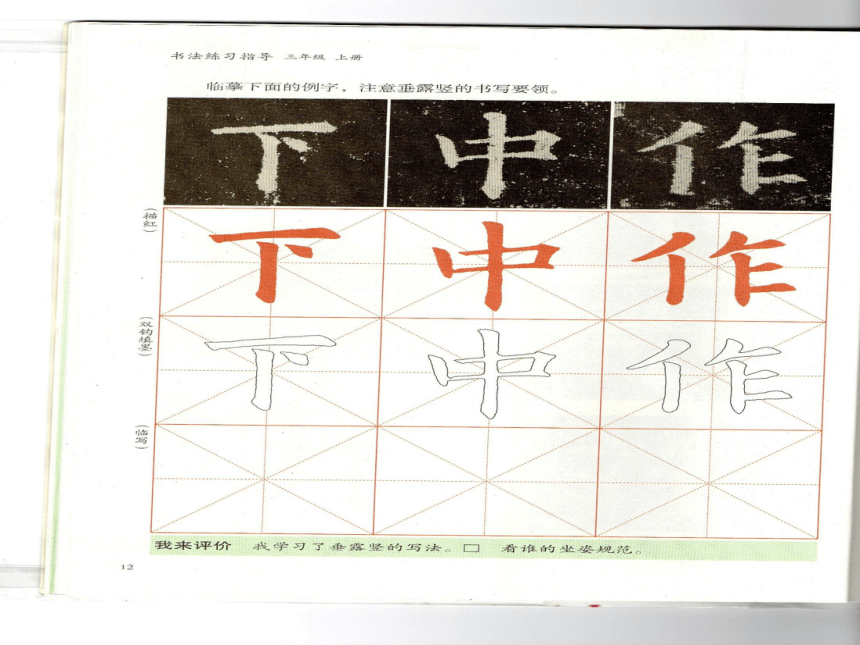 书法练习指导 三年级 上册
临摹下面的例字，注意垂露竖的书写要领。
下 中 作
（描红）
下 中 作
（双钩填墨）
下 中 作
（临写）
我来评价 我学习了垂露竖的写法。□ 看谁的坐姿规范。
12